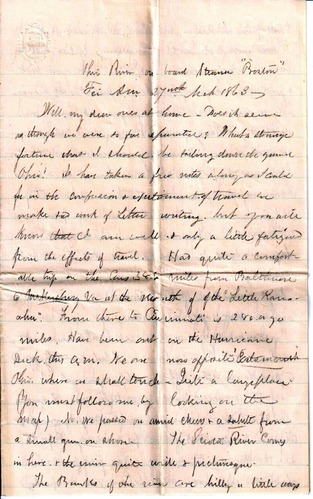 Ohio River on board Steamer "Boston"
Fri Am 27th Mch 1863
Well, my dear ones at home – Does it seem
as though we were so far separated? What a strange
fortune that I should be sailing down the grand
Ohio! I have taken a few notes along, as I could
for in the confusion & excitement of travel we
make sad work of Letter writing. but you will
know that I am well & only a little fatigued
from the effects of travel. Had quite a comfort-
able trip on the Cars 383 miles from Baltimore
to Parkersburg Va at the mouth of the "Little Kana-
wha". From there to Cincinnati is 280 ago
miles. Have been out on the Hurricane
Deck this A.m. We are now opposite Portsmouth
Ohio. where we shall touch – Quite a large place
(You must follow me by looking on the
Map) As we passed on amid cheers & a salute from
a small gun on shore The Scioto River Comes
in here. & the view quite wild & picturesque.
The Banks of the river are hilly a little ways